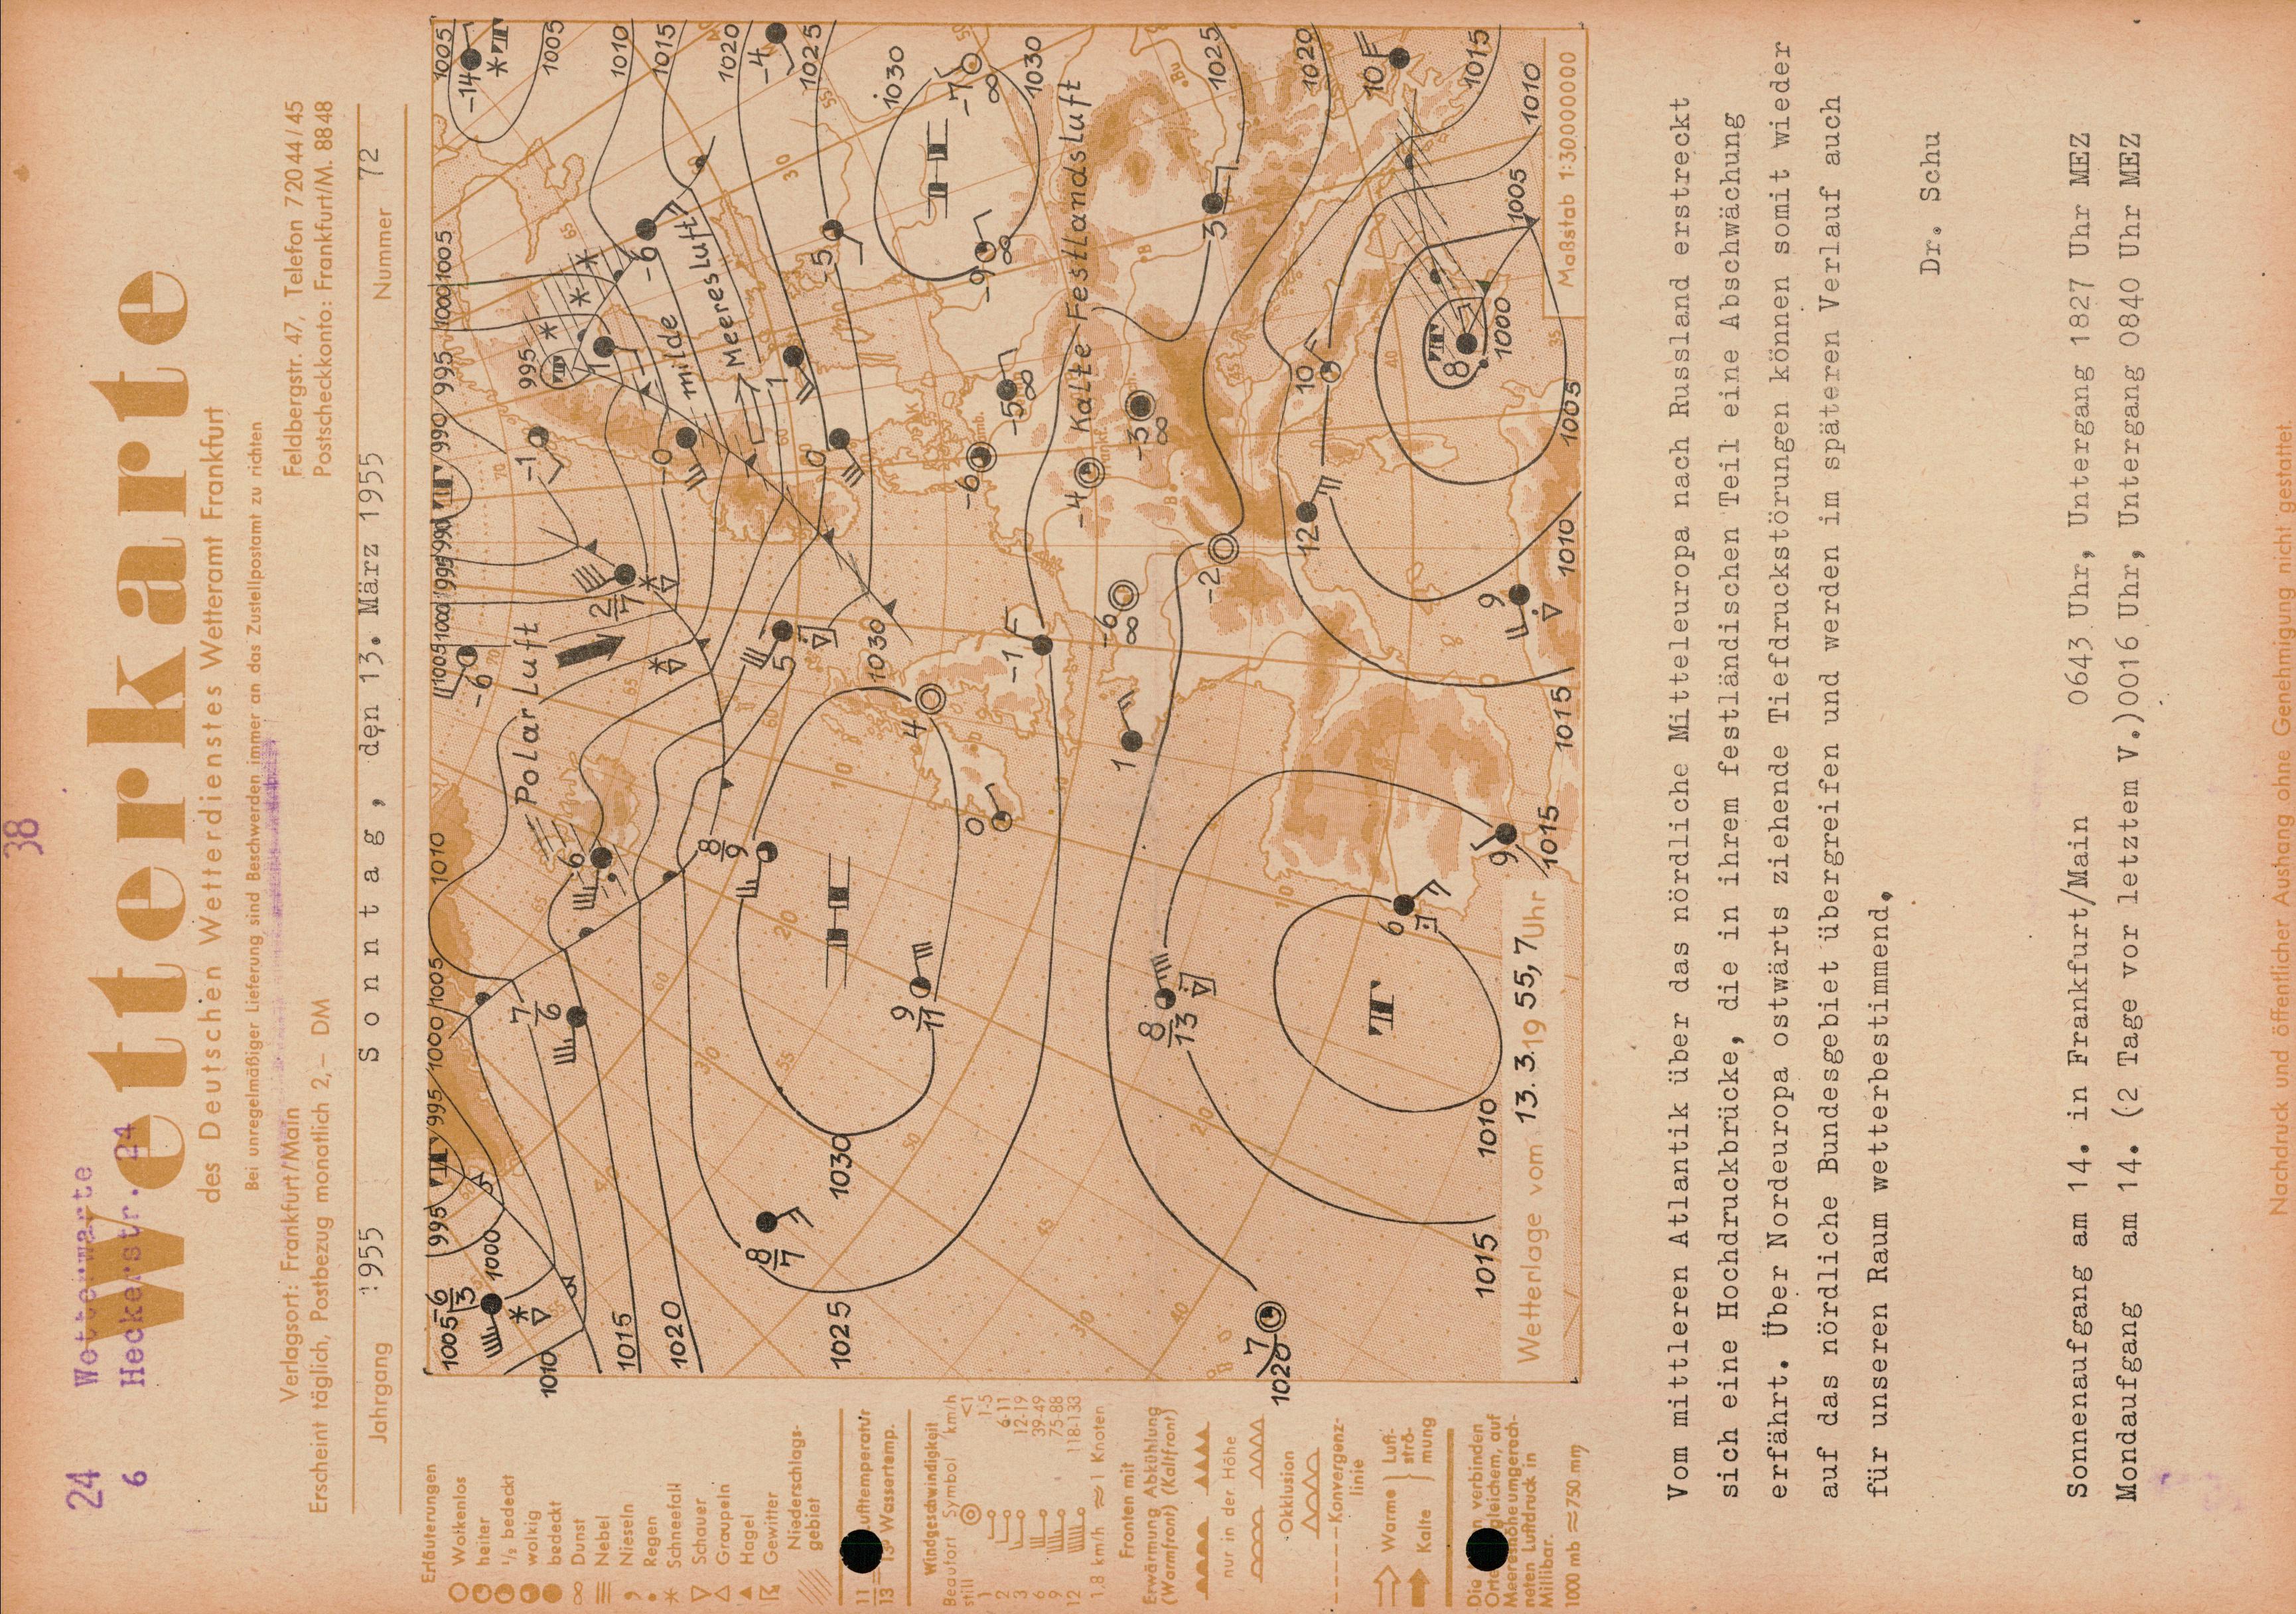 38
24 Wetterwarte
6 Heckerstr. 24
Wetterkarte
des Deutschen Wetterdienstes Wetteramt Frankfurt
Bei unregelmäßiger Lieferung sind Beschwerden immer an das Zustellpostamt zu richten
Verlagsort: Frankfurt/Main
Feldbergstr. 47, Telefon 72044/45
Erscheint täglich, Postbezug monatlich 2,– DM
Postscheckkonto: Frankfurt/M. 8848
Jahrgang 1955 Sonntag, den 13. März 1955 Nummer 72
Erläuterungen
Wolkenlos
heiter
½ bedeckt
wolkig
bedeckt
Dunst
Nebel
Nieseln
Regen
Schneefall
Schauer
Graupeln
Hagel
Gewitter
Niederschlags-
gebiet
11 Lufttemperatur
13 13° Wassertemp.
Windgeschwindigkeit
Beaufort Symbol km/h
still <1
1 1-5
2 6-11
3 12-19
6 39-49
9 75-88
12 118-133
1.8 km/h ≈ 1 Knoten
Fronten mit
Erwärmung Abkühlung
(Warmfront) (Kaltfront)
nur in der Höhe
Okklusion
Konvergenz-
linie
Warme Luft-
strö-
Kalte mung
Die verbinden
Orte gleichem, auf
Meereshöhe umgerech-
neten Luftdruck in
Millibar.
1000 mb ≈ 750 mm
Polarluft
milde
Meeresluft
Kalte Festlandsluft
H
H
T
T
T
1005 1010 1015 1020 1025 1030
995 1000 1005 1010
1005 1000 995 990 990 995 1000 1005
1005 1005 1010 1015 1020 1025 1030 1030 1025 1020 1015 1010
1030 1025 1020 1015 1010
1015 1015 1010 1005 1005 1000
Wetterlage vom 13. 3. 19 55, 7 Uhr
Maßstab 1:30000000
Vom mittleren Atlantik über das nördliche Mitteleuropa nach Russland erstreckt
sich eine Hochdruckbrücke, die in ihrem festländischen Teil eine Abschwächung
erfährt. Über Nordeuropa ostwärts ziehende Tiefdruckstörungen können somit wieder
auf das nördliche Bundesgebiet übergreifen und werden im späteren Verlauf auch
für unseren Raum wetterbestimmend.
Dr. Schu
Sonnenaufgang am 14. in Frankfurt/Main 0643 Uhr, Untergang 1827 Uhr MEZ
Mondaufgang am 14. (2 Tage vor letztem V.)0016 Uhr, Untergang 0840 Uhr MEZ
Nachdruck und öffentlicher Aushang ohne Genehmigung nicht gestattet.